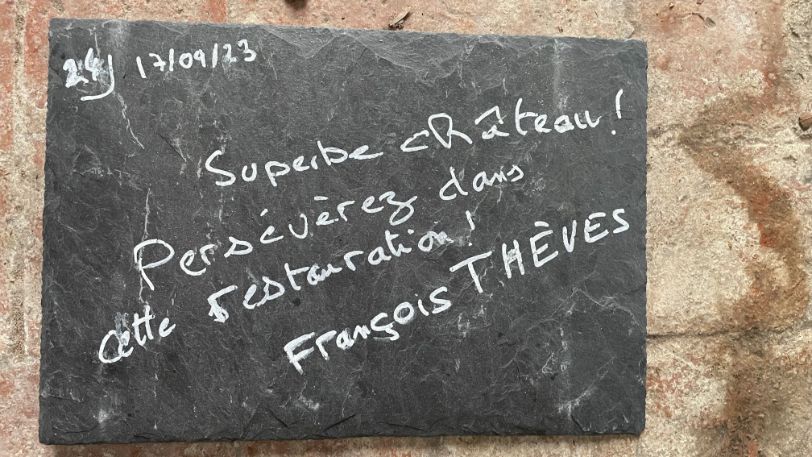 17/09/23
Superbe château!
Persévèrez dans
cette restauration!
François THÈVES